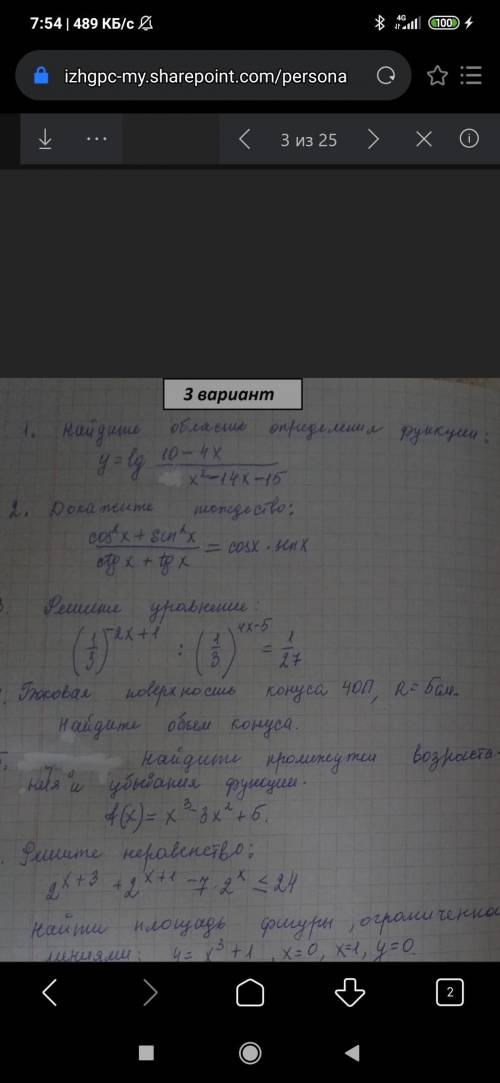 7:54 | 489 КБ/с
4G
100
izhgpc-my.sharepoint.com/persona
3 из 25
3 вариант
1. Найдите область определения функции:
y = lg (10 - 4x) / (x² - 14x - 15)
2. Докажите тождество:
(cos²x + sin²x) / (ctg x + tg x) = cosx · sinx
Решите уравнение:
(1/3)^(-2x+1) : (1/3)^(4x-5) = 1/27
Боковая поверхность конуса 40П, R = 5см.
Найдите объем конуса.
Найдите промежутки возраста-
ния и убывания функции.
f(x) = x³ - 3x² + 5.
Решите неравенство:
2^(x+3) + 2^(x+1) - 7 · 2^x ≤ 24
Найти площадь фигуры, ограниченно
линиями: y = x³ + 1, x=0, x=1, y=0.
2